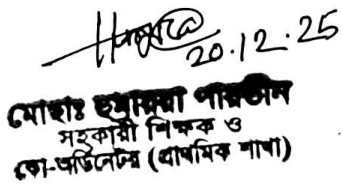 20.12.25
মোছাঃ হুমায়রা পারভীন
সহকারী শিক্ষক ও
কো-অর্ডিনেটর (প্রাথমিক শাখা)